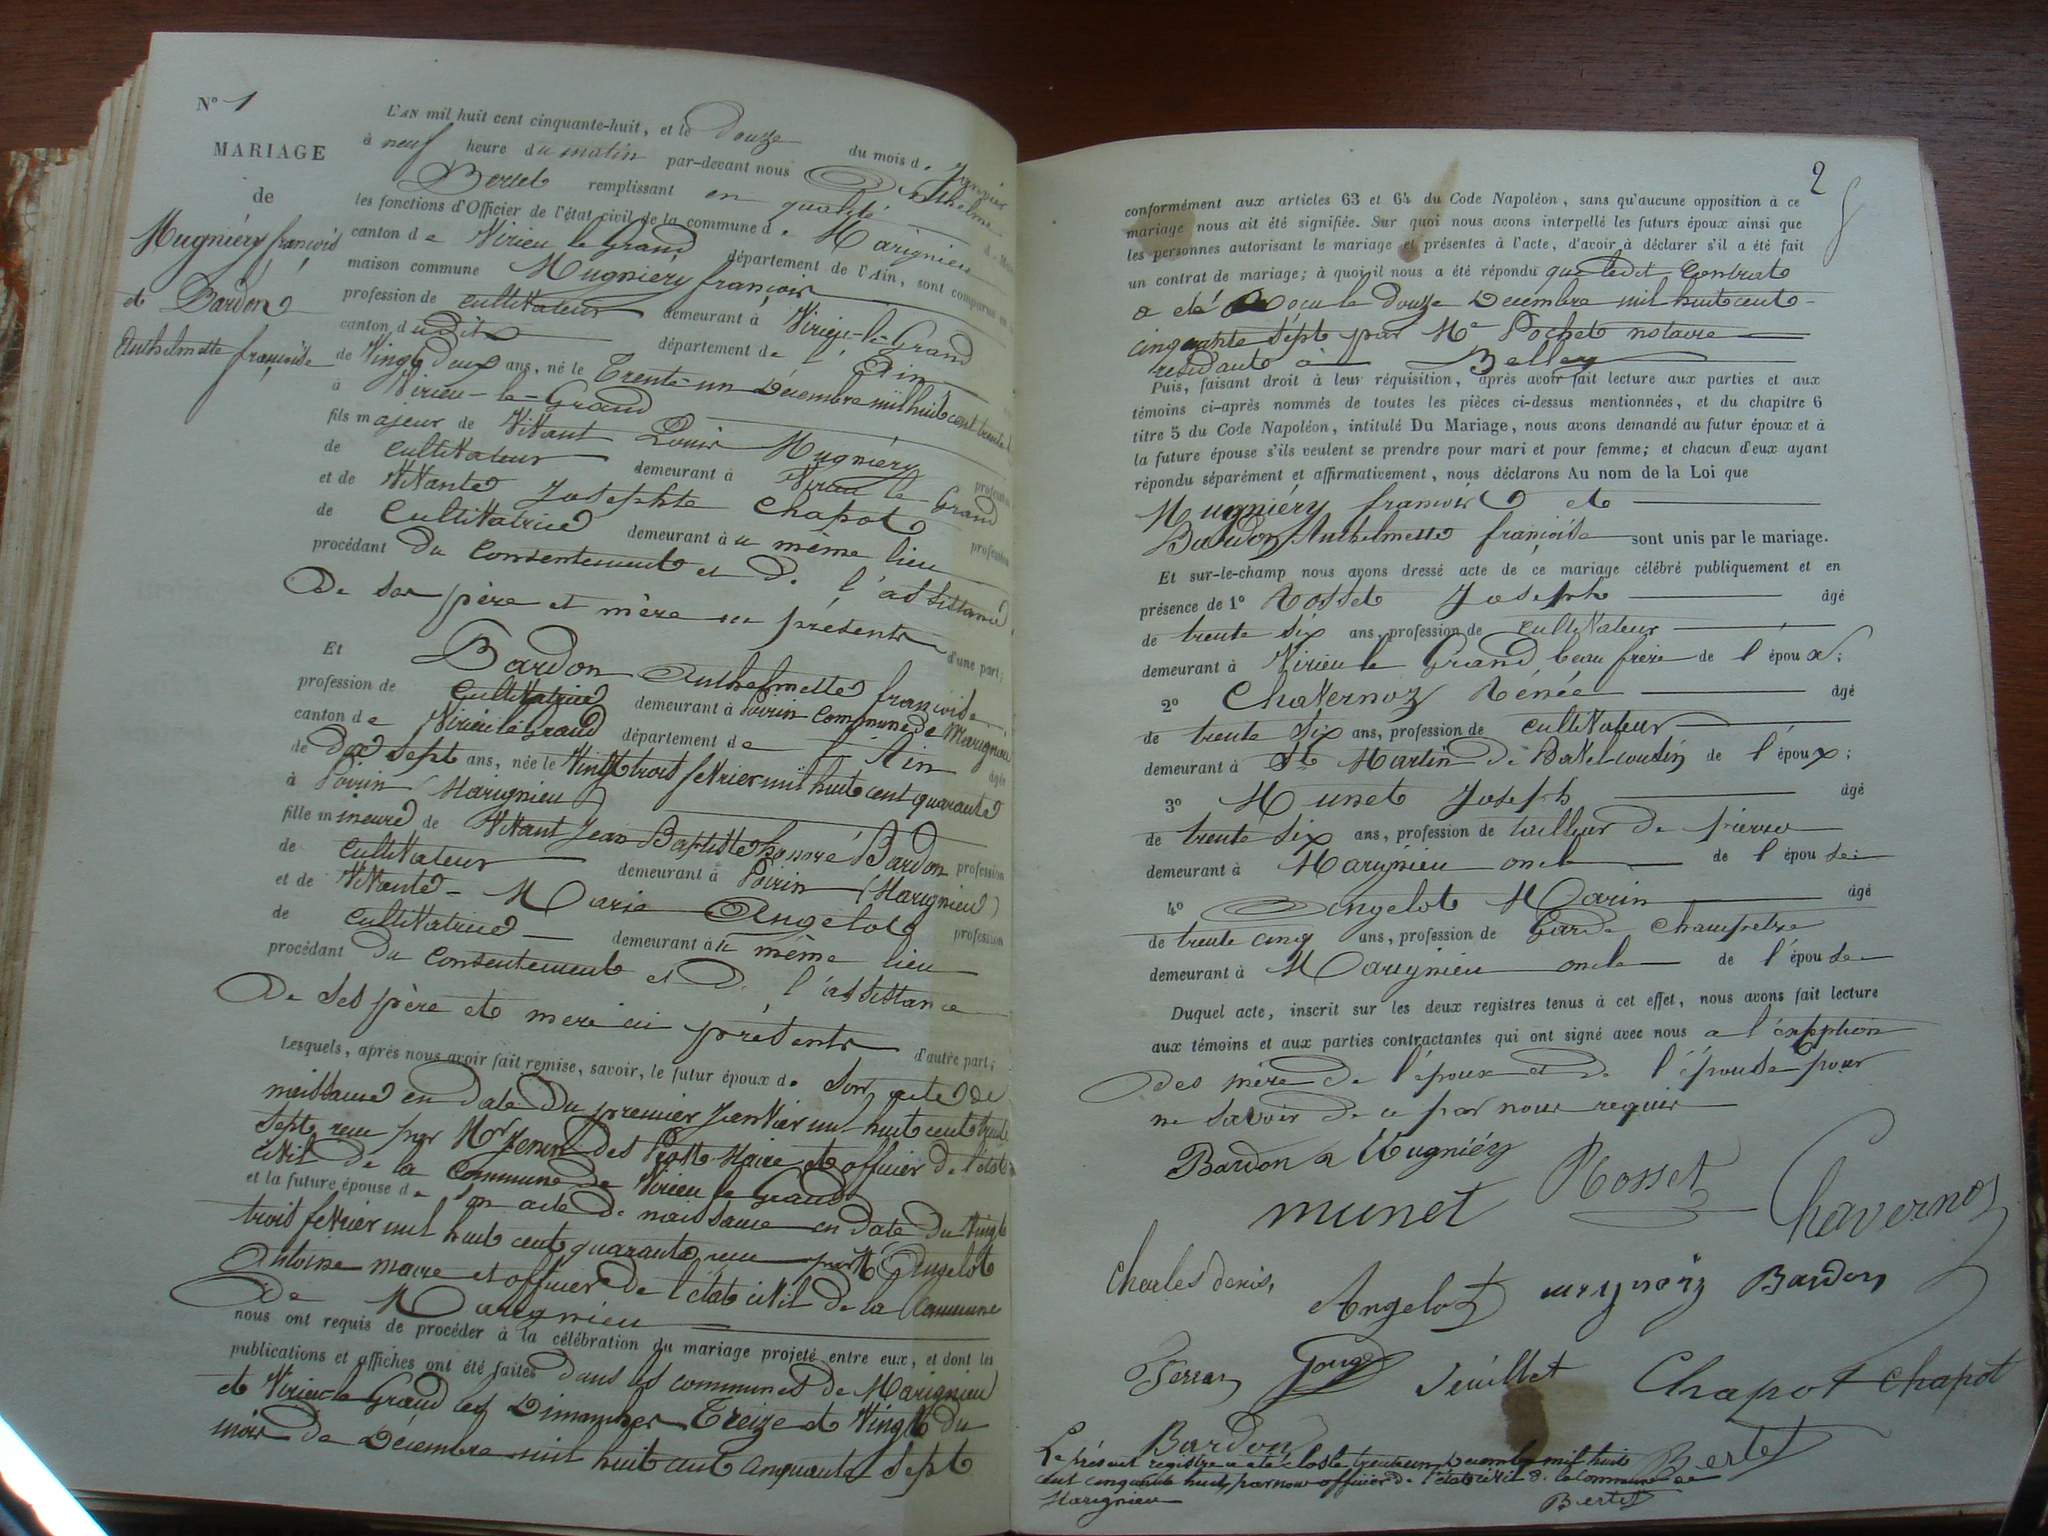 N° 1
MARIAGE
de
Mugniéry françois
et Bardon
Anthelmette françoise
L'AN mil huit cent cinquante-huit, et le Douze du mois de Janvier
à neuf heure du matin par-devant nous Anthelme
Bertet remplissant en qualité de
les fonctions d'Officier de l'état civil de la commune de Marignieu
canton de Virieu le Grand département de l'Ain, sont comparus en la
maison commune Mugniéry françois
profession de cultivateur demeurant à Virieu-le-Grand
canton dudit département de l'Ain
de Vingt Deux ans, né le Trente-un Décembre mil huit cent trente
à Virieu-le-Grand
fils majeur de Vivant Louis Mugniéry
de cultivateur demeurant à Virieu le Grand profession
et de Vivante Josephte Chapot
de Cultivatrice demeurant au même lieu profession
procédant du Consentement et de l'assistance
De ses père et mère ici présents d'une part;
Et Bardon Anthelmette françoise
profession de Cultivatrice demeurant à Poirin Commune de Marignieu
canton de Virieu le Grand département de l'Ain
de dix sept ans, née le Vingt trois fevrier mil huit cent quarante
à Poirin (Marignieu)
fille mineure de Vivant Jean Baptiste honoré Bardon profession
de Cultivateur demeurant à Poirin (Marignieu)
et de Vivante Marie Angelot profession
de Cultivatrice demeurant au même lieu
procédant du Consentement et de l'assistance
De ses père et mere ici présents d'autre part;
Lesquels, après nous avoir fait remise, savoir, le futur époux de Son acte de
naissance en date Du premier Janvier mil huit cent trente
sept recu par Mr des Maire et officier de l'état
civil de la Commune de Virieu le Grand
et la future épouse de son acte de naissance en date Du Vingt
trois fevrier mil huit cent quarante recu par Mr Angelot
Antoine maire et officier de l'état civil de la Commune
de Marignieu
nous ont requis de procéder à la célébration du mariage projeté entre eux, et dont les
publications et affiches ont été faites Dans les communes de Marignieu
et Virieu le Grand les Dimanches Treize et Vingt du
mois de Décembre mil huit cent cinquante sept
2
conformément aux articles 63 et 64 du Code Napoléon, sans qu'aucune opposition à ce
mariage nous ait été signifiée. Sur quoi nous avons interpellé les futurs époux ainsi que
les personnes autorisant le mariage et présentes à l'acte, d'avoir à déclarer s'il a été fait
un contrat de mariage; à quoi il nous a été répondu que ledit Contrat
a été reçu le Douze Decembre mil huit cent
cinquante sept par Me Pochet notaire
residant à Belley
Puis, faisant droit à leur réquisition, après avoir fait lecture aux parties et aux
témoins ci-après nommés de toutes les pièces ci-dessus mentionnées, et du chapitre 6
titre 5 du Code Napoléon, intitulé Du Mariage, nous avons demandé au futur époux et à
la future épouse s'ils veulent se prendre pour mari et pour femme; et chacun d'eux ayant
répondu séparément et affirmativement, nous déclarons Au nom de la Loi que
Mugniéry françois et
Bardon Anthelmette françoise sont unis par le mariage.
Et sur-le-champ nous avons dressé acte de ce mariage célébré publiquement et en
présence de 1° Rosset Joseph âgé
de trente six ans, profession de Cultivateur
demeurant à Virieu le Grand beau frère de l'époux;
2° Chavernoz Rénée âgé
de trente six ans, profession de Cultivateur
demeurant à St Martin de Bavel cousin de l'époux;
3° Munet Joseph âgé
de trente six ans, profession de tailleur de pierre
demeurant à Marignieu oncle de l'épouse
4° Angelot Marin âgé
de trente cinq ans, profession de Garde Champetre
demeurant à Marignieu oncle de l'épouse
Duquel acte, inscrit sur les deux registres tenus à cet effet, nous avons fait lecture
aux témoins et aux parties contractantes qui ont signé avec nous a l'exeption
Des mère de l'époux et de l'épouse pour
ne savoir de ce par nous requis
Bardon a Mugniéry Rosset
munet Chavernoz
Charles denis Angelot Bardon
Ferrar Gouge Seuillet Chapot chapot
Bardon Bertet
Le présent registre a été clos le trente un Decembre mil huit
cent cinquante huit, par nous officier de l'état civil de la Commune de
Marignieu Bertet